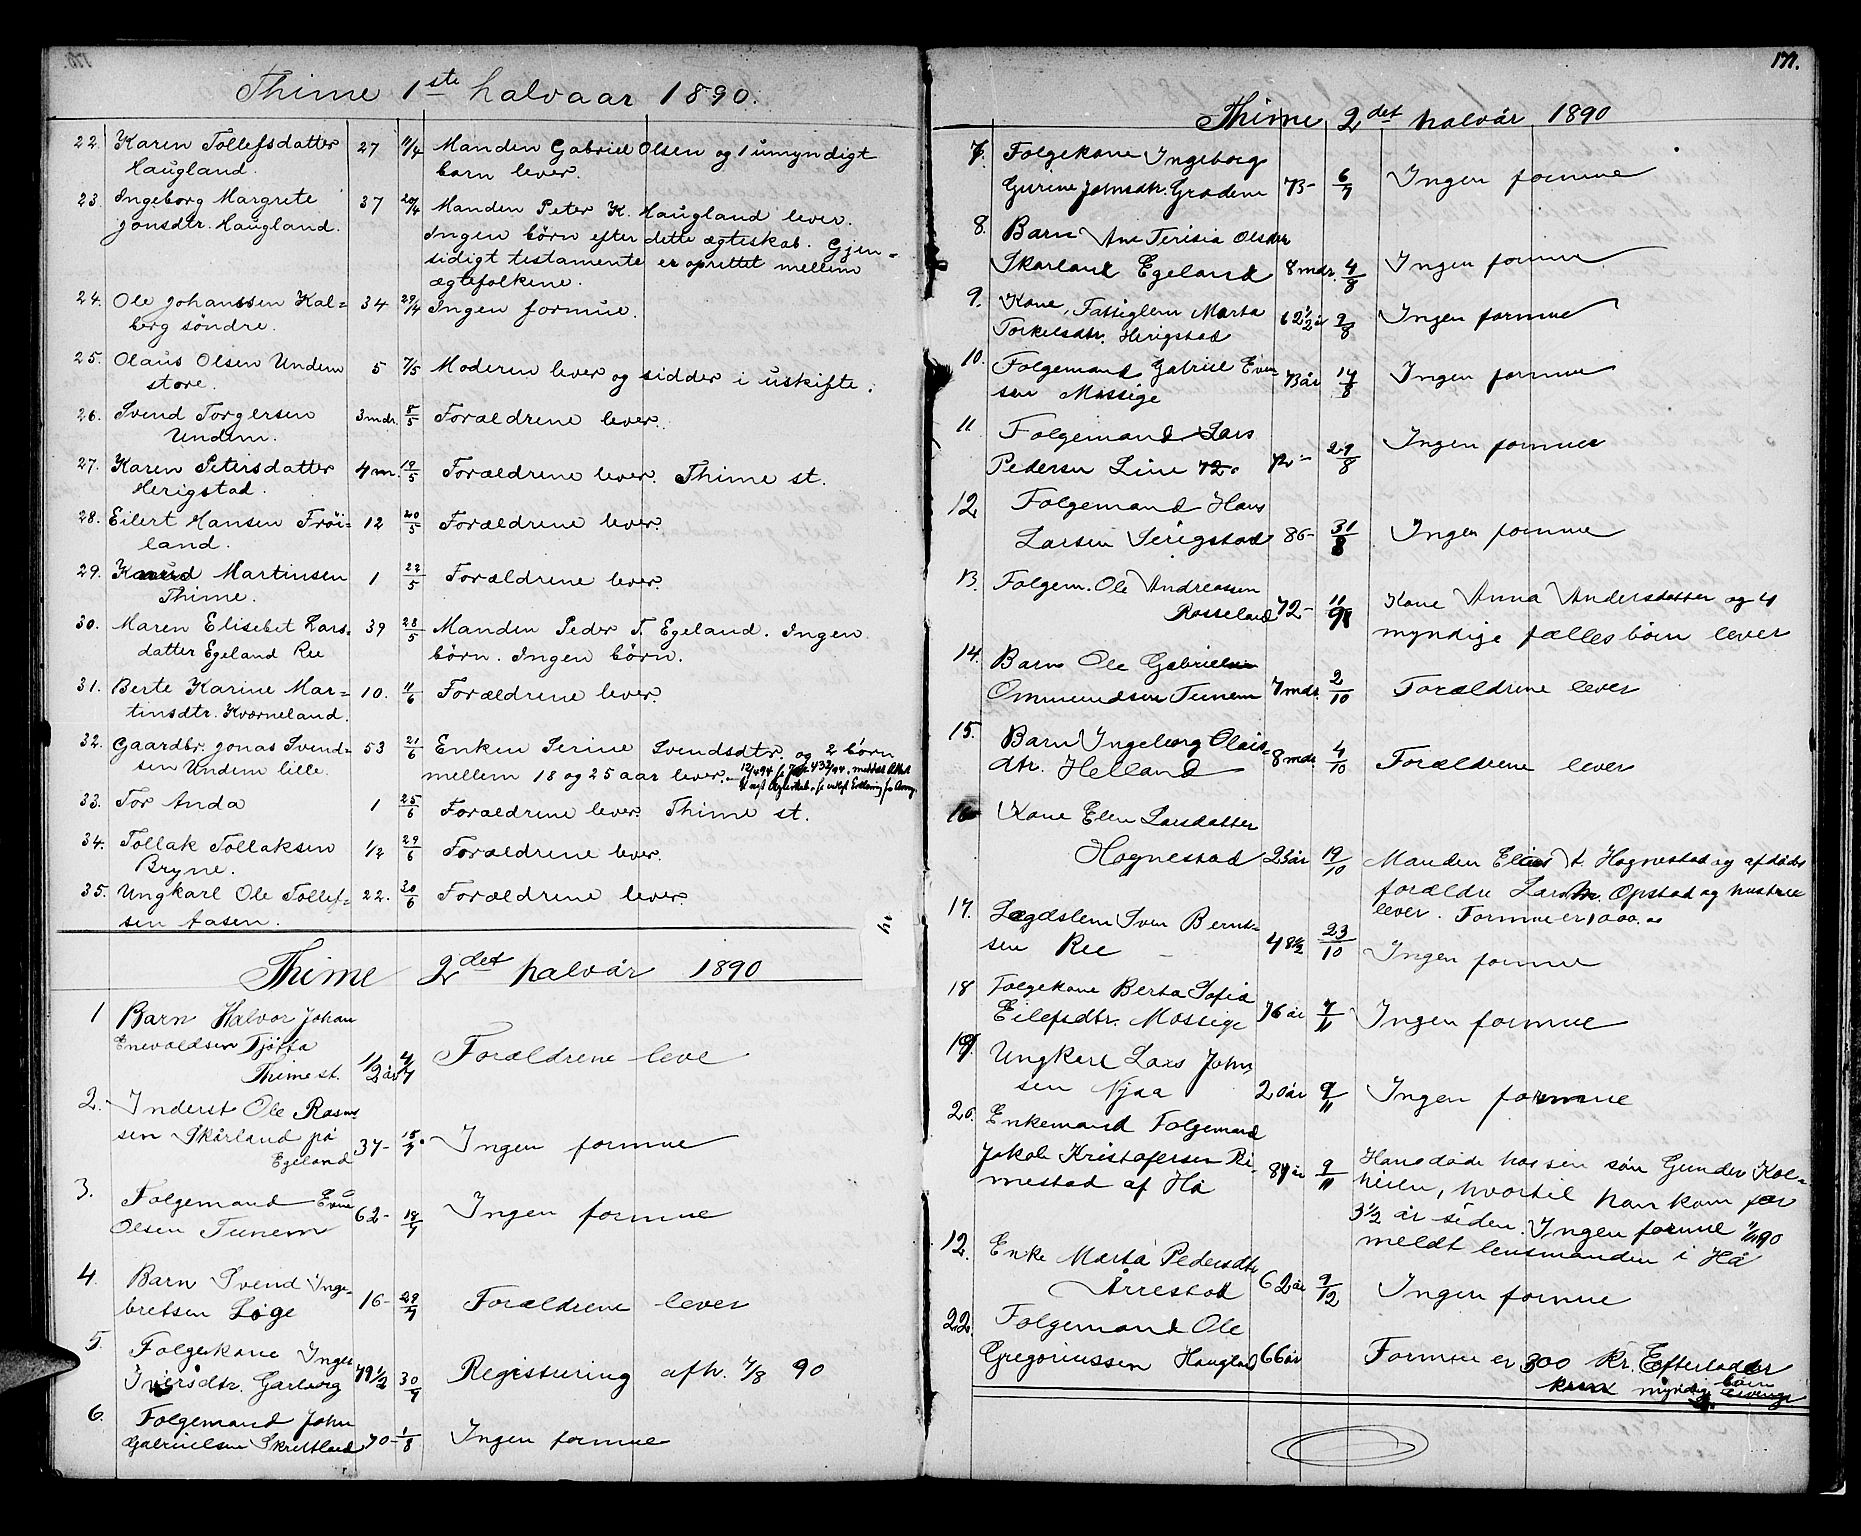 Thime 1ste halvaar 1890.
22. Karen Tollefsdatter 27 11/4 Manden Gabriel Olsen og 1 umyndigt
Haugland. barn lever.
23. Ingeborg Margrete 37 20/4 Manden Peter K. Haugland lever.
Jonsdtr. Haugland. Ingen börn efter dette ægteskab. Gjen-
sidigt testamente er oprettet mellem
ægtefolkene.
24. Ole Johanssen Kal= 34 29/4 Ingen formue.
berg söndre.
25. Olaus Olsen Undem 5 7/5 Moderen lever og sidder i uskifte.
store.
26. Svend Torgersen 3 mdr. 8/5 Forældrene lever.
Undem.
27. Karen Petersdatter 4 m. 19/5 Forældrene lever. Thime st.
Herigstad.
28. Eilert Hansen Fröi- 12 20/5 Forældrene lever.
land.
29. Knud Martinsen 1 22/5 Forældrene lever.
Thime.
30. Maren Elisebet Lars- 39 28/5 Manden Peder T. Egeland. Ingen
datter Egeland Ree börn. Ingen börn.
31. Berte Karine Mar= 10. 11/6 Forældrene lever.
tinsdtr. Kværneland.
32. Gaardbr. Jonas Svend- 53 21/6 Enken Serine Svendsdtr. og 2 börn
sen Undem lille. mellem 18 og 25 aar lever.
33. Tor Anda 1 25/6 Forældrene lever. Thime st.
34. Tollak Tollaksen 1/2 29/6 Forældrene lever.
Bryne.
35. Ungkarl Ole Tollef- 22. 30/6 Forældrene lever
sen Aasen.
Thime 2det halvår 1890
1 Barn Halvor Johan
Enevoldsen Tjötta
Thime st. 1/2 år 4/7 Forældrene leve
2. Inderst Ole Rasmus
sen Skårland på 37- 15/7 Ingen formue
Egeland
3. Folgemand Enu
Olsen Tunem 62- 18/7 Ingen formue
4. Barn Svend Inge-
bretsen Löge 16- 29/7 Forældrene lever
5. Folgekone Inger
Iversdtr. Garborg 79 1/2 30/7 Registrering afh. 7/8 90
6. Folgemand John
Gabrielsen Skrettland 70- 1/8 Ingen formue
171.
Thime 2det halvår 1890
7. Folgekone Ingeborg
Gurine Johnsdtr. Grödem 73- 6/7 Ingen formue
8. Barn Ane Terisia Olsdtr
Skårland Egeland 8 mdr. 4/8 Ingen formue
9. Kone, Fattiglem Marta 62 1/2 år 9/8 Ingen formue
Torkelsdtr. Herigstad
10. Folgemand Gabriel Even-
sen Mossige 73 år 14/8 Ingen formue
11 Folgemand Lars
Pedersen Line 72- 72- 29/8 Ingen formue
12 Folgemand Hans
Larsen Serigstad 86- 31/8 Ingen formue
13. Folgem. Ole Andreassen
Rosseland 72- 11/9 Kone Anna Andersdatter og 4
myndige fælles börn lever
14. Barn Ole Gabrielsen
Ommundsen Tunem 7 mdr. 2/10 Forældrene lever
15. Barn Ingeborg Olais-
dtr. Helland 8 mdr. 4/10 Forældrene lever
16 Kone Elen Larsdatter
Hognestad 23 år 19/10 Manden Elias T. Hognestad og afdödes
forældre Lars M. Opstad og hustru
lever. Formue er 1000.00
17. Lægdslem Sven Bernt-
sen Ree 48 1/2 23/10 Ingen formue
18 Folgekone Berta Sofia
Eilefsdtr. Mossige 76 år 7/11 Ingen formue
19. Ungkarl Lars John-
sen Njaa 20 år 9/11 Ingen formue
20. Enkemand Folgemand
Jakob Kristofersen Ri- 81 år 9/11 Han döde hos sin sön Gunder Kol-
mestad af Hå heien, hvortil han kom for
3 1/2 år siden. Ingen formue 11/11 90
meldt lensmanden i Hå
12. Enke Marta Pedersdtr
Årrestad 62 år 9/12 Ingen formue
22. Folgemand Ole
Gregoriussen Haugland 66 år Formue er 300 Kr. Efterlader
myndig börn